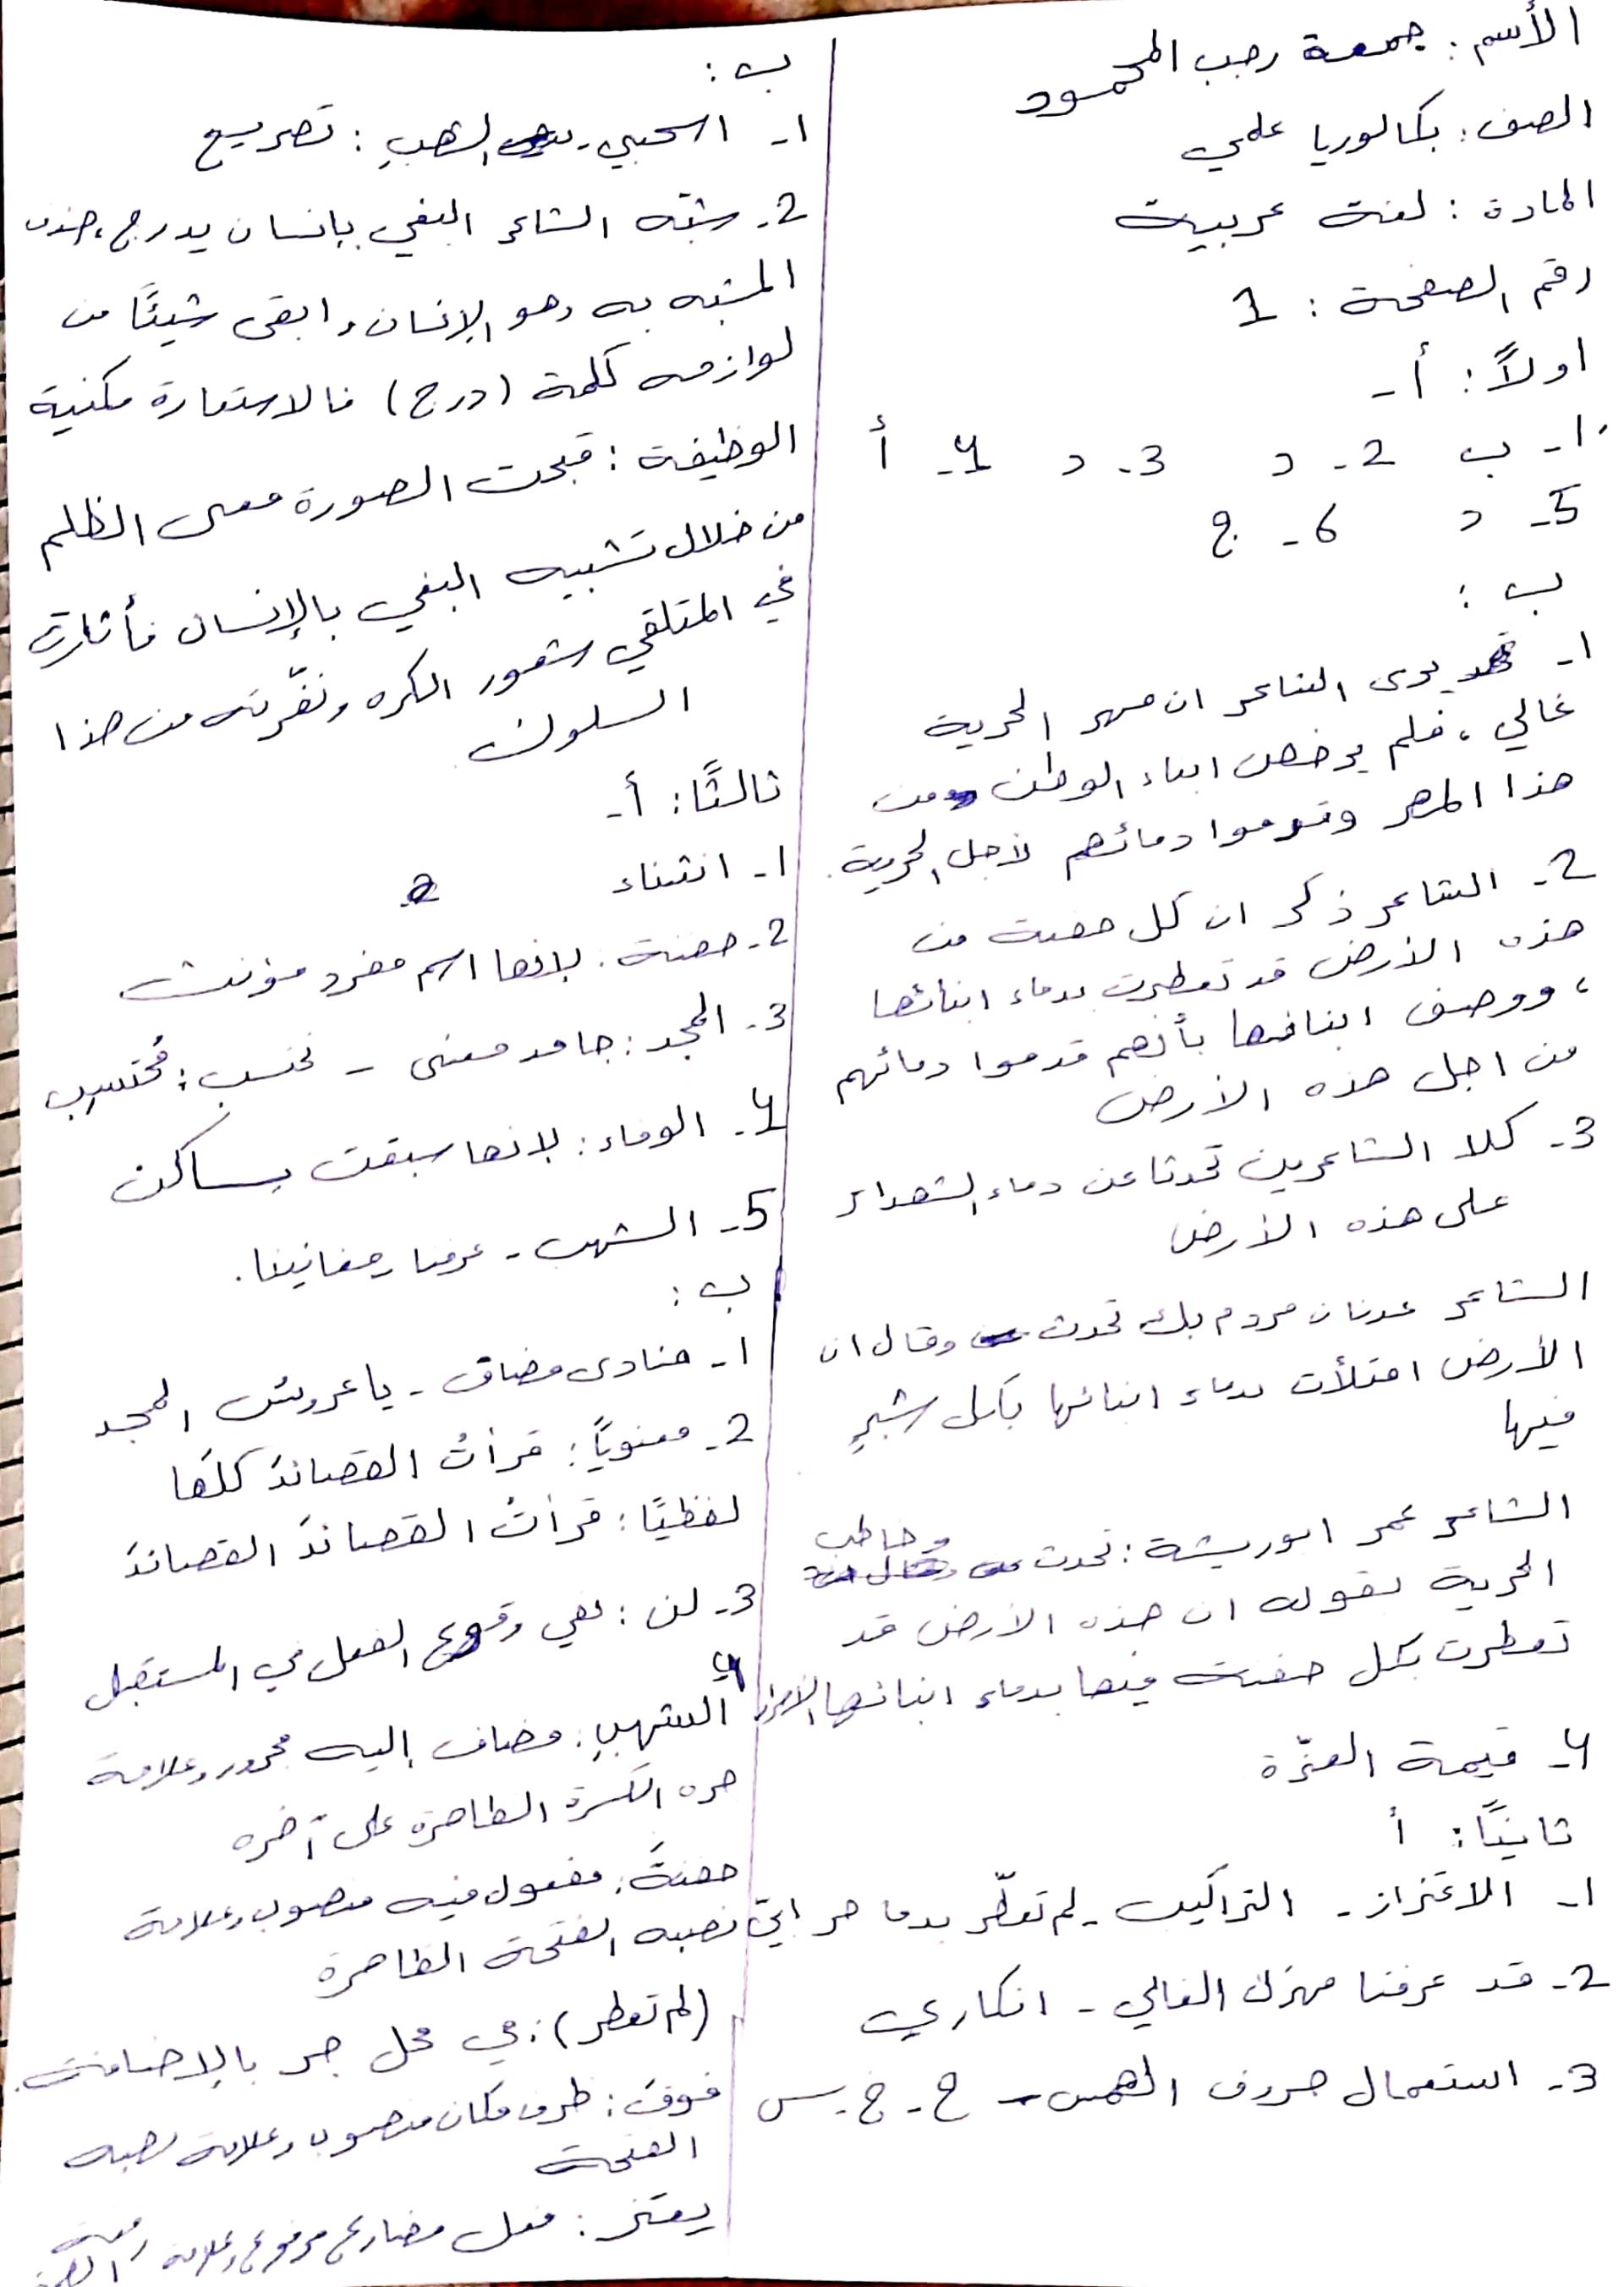 الأسم : جمعة رجب المحمود
الصف : بكالوريا علمي
المادة : لغة عربية
رقم الصفحة : 1
اولاً : أ -
1- ب 2- د 3- د 4- أ
5- د 6- ج
ب :
1- يرى الشاعر ان مهر الحرية
غالي ، فلم يرخص ابناء الوطن من
هذا المهر وقدموا دمائهم لأجل الحرية .
2- الشاعر ذكر ان كل حفنة من
هذه الأرض قد تعطرت بدماء ابنائها
، ووصف ابنائها بأنهم قدموا دمائهم
من اجل هذه الأرض
3- كلا الشاعرين تحدثا عن دماء الشهداء
على هذه الأرض
الشاعر عدنان مردم بك تحدث وقال ان
الأرض امتلأت بدماء ابنائها بكل شبرٍ
فيها
الشاعر عمر ابوريشة : تحدث وخاطب
الحرية بقوله ان هذه الأرض قد
تعطرت بكل حفنة فيها بدماء ابنائها الأحرار
4- قيمة العزّة
ثانيًا : أ
1- الاعتزاز - التراكيب - لم تعطّر بدما حر ابيّ
2- قد عرفنا مهرك الغالي - انكاري
3- استعمال حروف الهمس - ح - خ - س
ب :
1- اسحبي - الشهبِ : تصريع
2- شبّه الشاعر البغي بإنسان يدرج ، حذف
المشبه به وهو الإنسان وابقى شيئًا من
لوازمه كلمة (درج) فالاستعارة مكنية
الوظيفة : قبحت الصورة معنى الظلم
من خلال تشبيه البغي بالإنسان فأثارت
في المتلقي شعور الكره ونفّرته من هذا
السلوك
ثالثًا : أ -
1- انثناء
2- حفنة : لإنها اسم مفرد مؤنث
3- المجد : جامد معنى - نحتسب : مُحتسِب
4- الوفاء : لإنها سبقت بساكن
5- الشهب - عرفنا - مغانينا .
ب :
1- منادى مضاف - يا عروسَ المجد
2- معنوياً : قرأتُ القصائدَ كلَّها
لفظيًا : قرأتُ القصائدَ القصائدَ
3- لن : نفي وقوع الفعل في المستقبل
4 الشهبِ : مضاف إليه مجرور وعلامة
جره الكسرة الظاهرة على آخره
حفنةً : مفعول فيه منصوب وعلامة
نصبه الفتحة الظاهرة
(لم تعطر) : في محل جر بالإضافة .
فوقَ : ظرف مكان منصوب وعلامة نصبه
الفتحة
يعتز : فعل مضارع مرفوع وعلامة رفعه